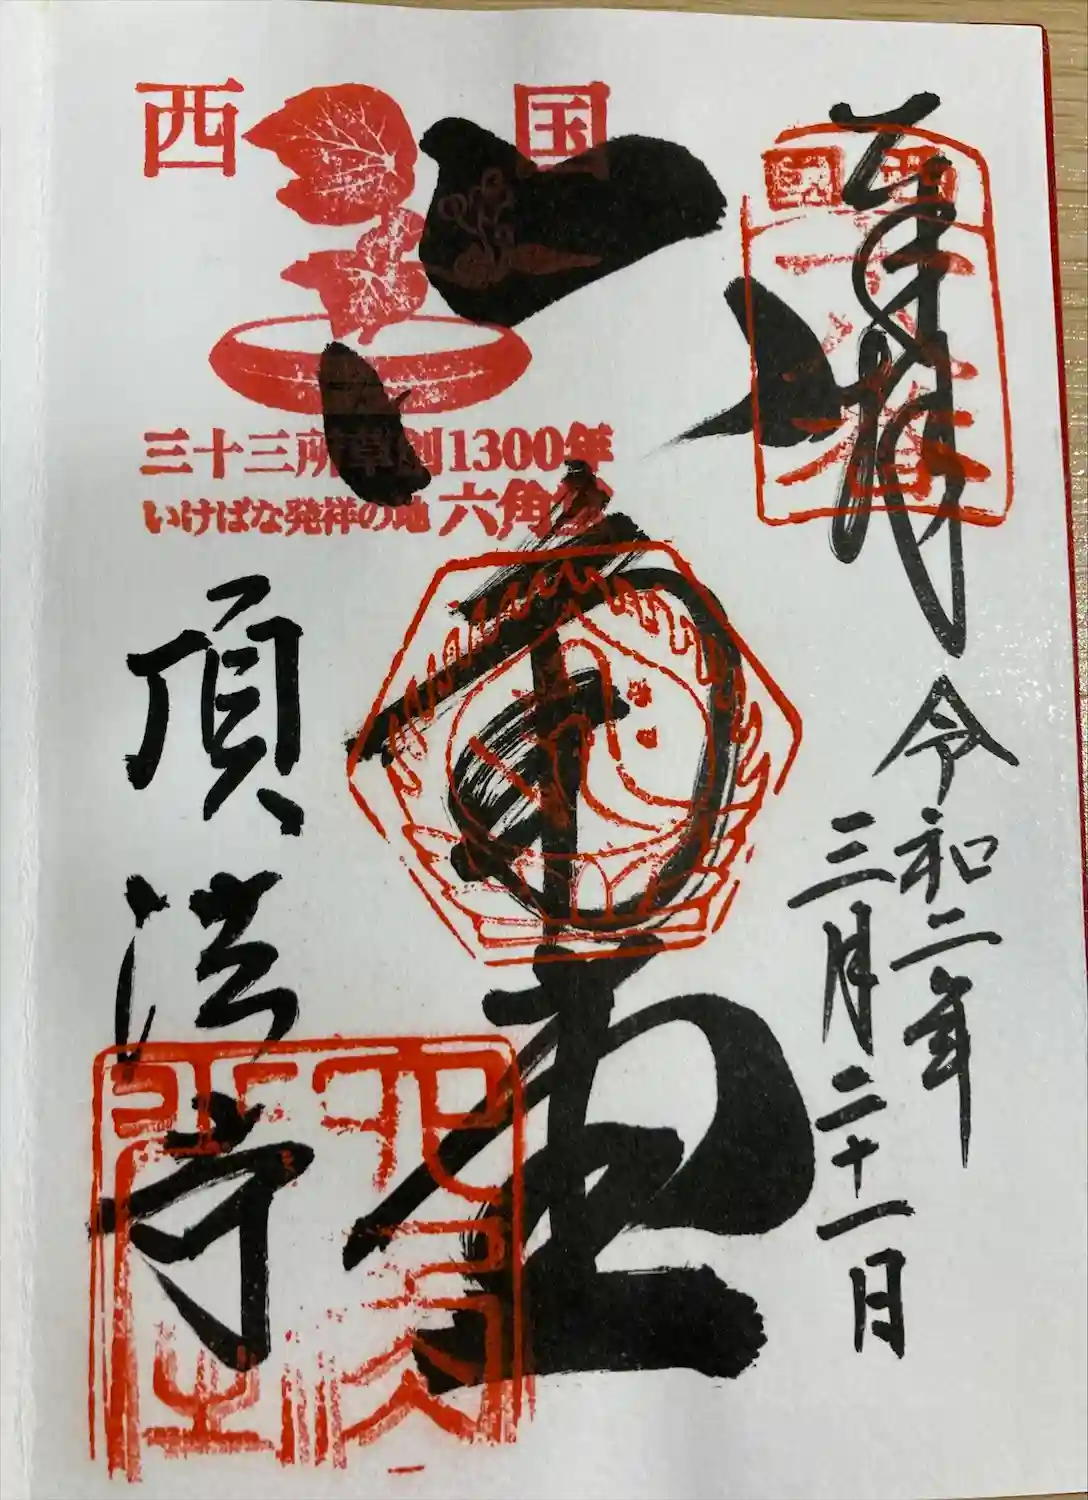 奉拝
令和二年
三月二十一日
西国
十八番
六角堂
西国
三十三所草創1300年
いけばな発祥の地 六角堂
頂法寺